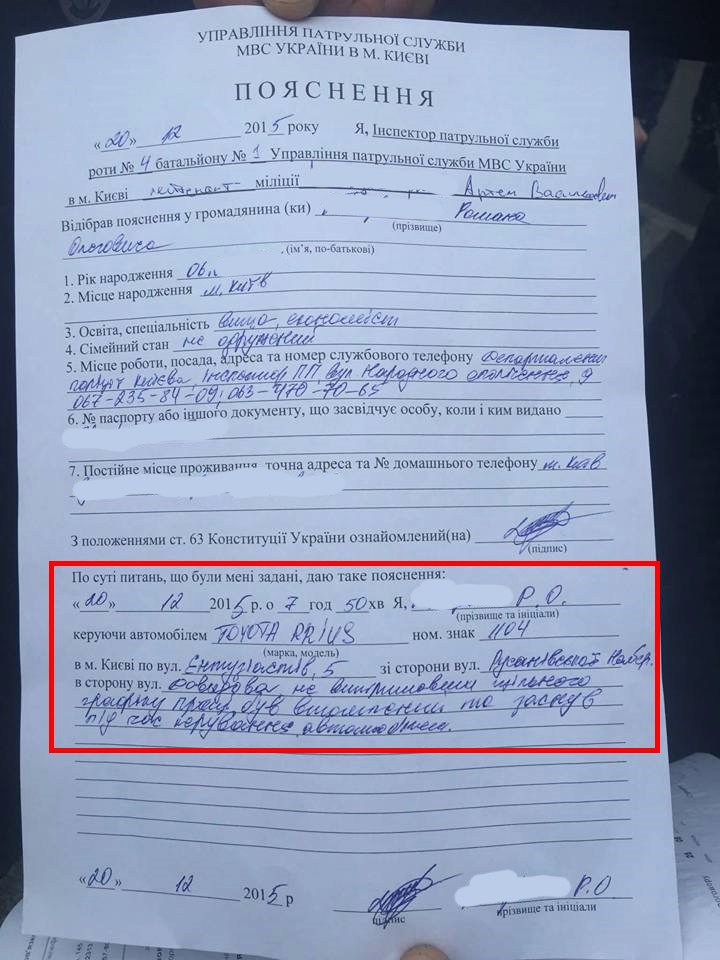 УПРАВЛІННЯ ПАТРУЛЬНОЇ СЛУЖБИ
МВС УКРАЇНИ В М. КИЄВІ
ПОЯСНЕННЯ
«20» 12 2015 року Я, Інспектор патрульної служби
роти № 4 батальйону № 1 Управління патрульної служби МВС України
в м. Києві лейтенант міліції Артем Васильович
Відібрав пояснення у громадянина (ки) Романа
(прізвище)
Ольговича , (ім’я, по-батькові)
1. Рік народження 06.
2. Місце народження м. Київ
3. Освіта, спеціальність вища, економіст
4. Сімейний стан не одружений
5. Місце роботи, посада, адреса та номер службового телефону Департамент
поліції Києва Інспектор ПП, вул Народного ополчення, 9
067-235-84-09, 063-470-70-65
6. № паспорту або іншого документу, що засвідчує особу, коли і ким видано
7. Постійне місце проживання, точна адреса та № домашнього телефону м. Київ
З положеннями ст. 63 Конституції України ознайомлений(на)
(підпис)
По суті питань, що були мені задані, даю таке пояснення:
«20» 12 2015 р. о 7 год 50 хв Я, Р. О.
(прізвище та ініціали)
керуючи автомобілем TOYOTA PRIUS ном. знак 1104
(марка, модель)
в м. Києві по вул. Ентузіастів, 5 зі сторони вул. Русанівської Набер.
в сторону вул. Давидова, не витримавши щільного
графіку праці був виснажений та заснув
під час керування автомобілем.
«20» 12 2015 р Р.О
підпис прізвище та ініціали